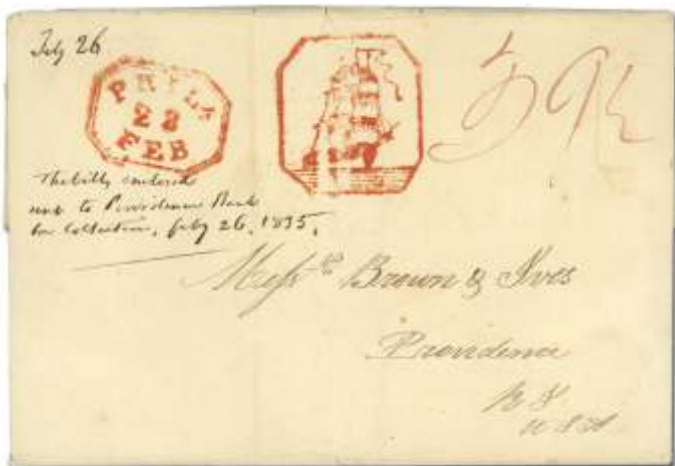 Feby 26
PHILA
22
FEB
39½
The bills enclosed
sent to Providence Bank
for Collection, feby 26, 1835,
Messrs Brown & Ives
Providence
R I
U S A